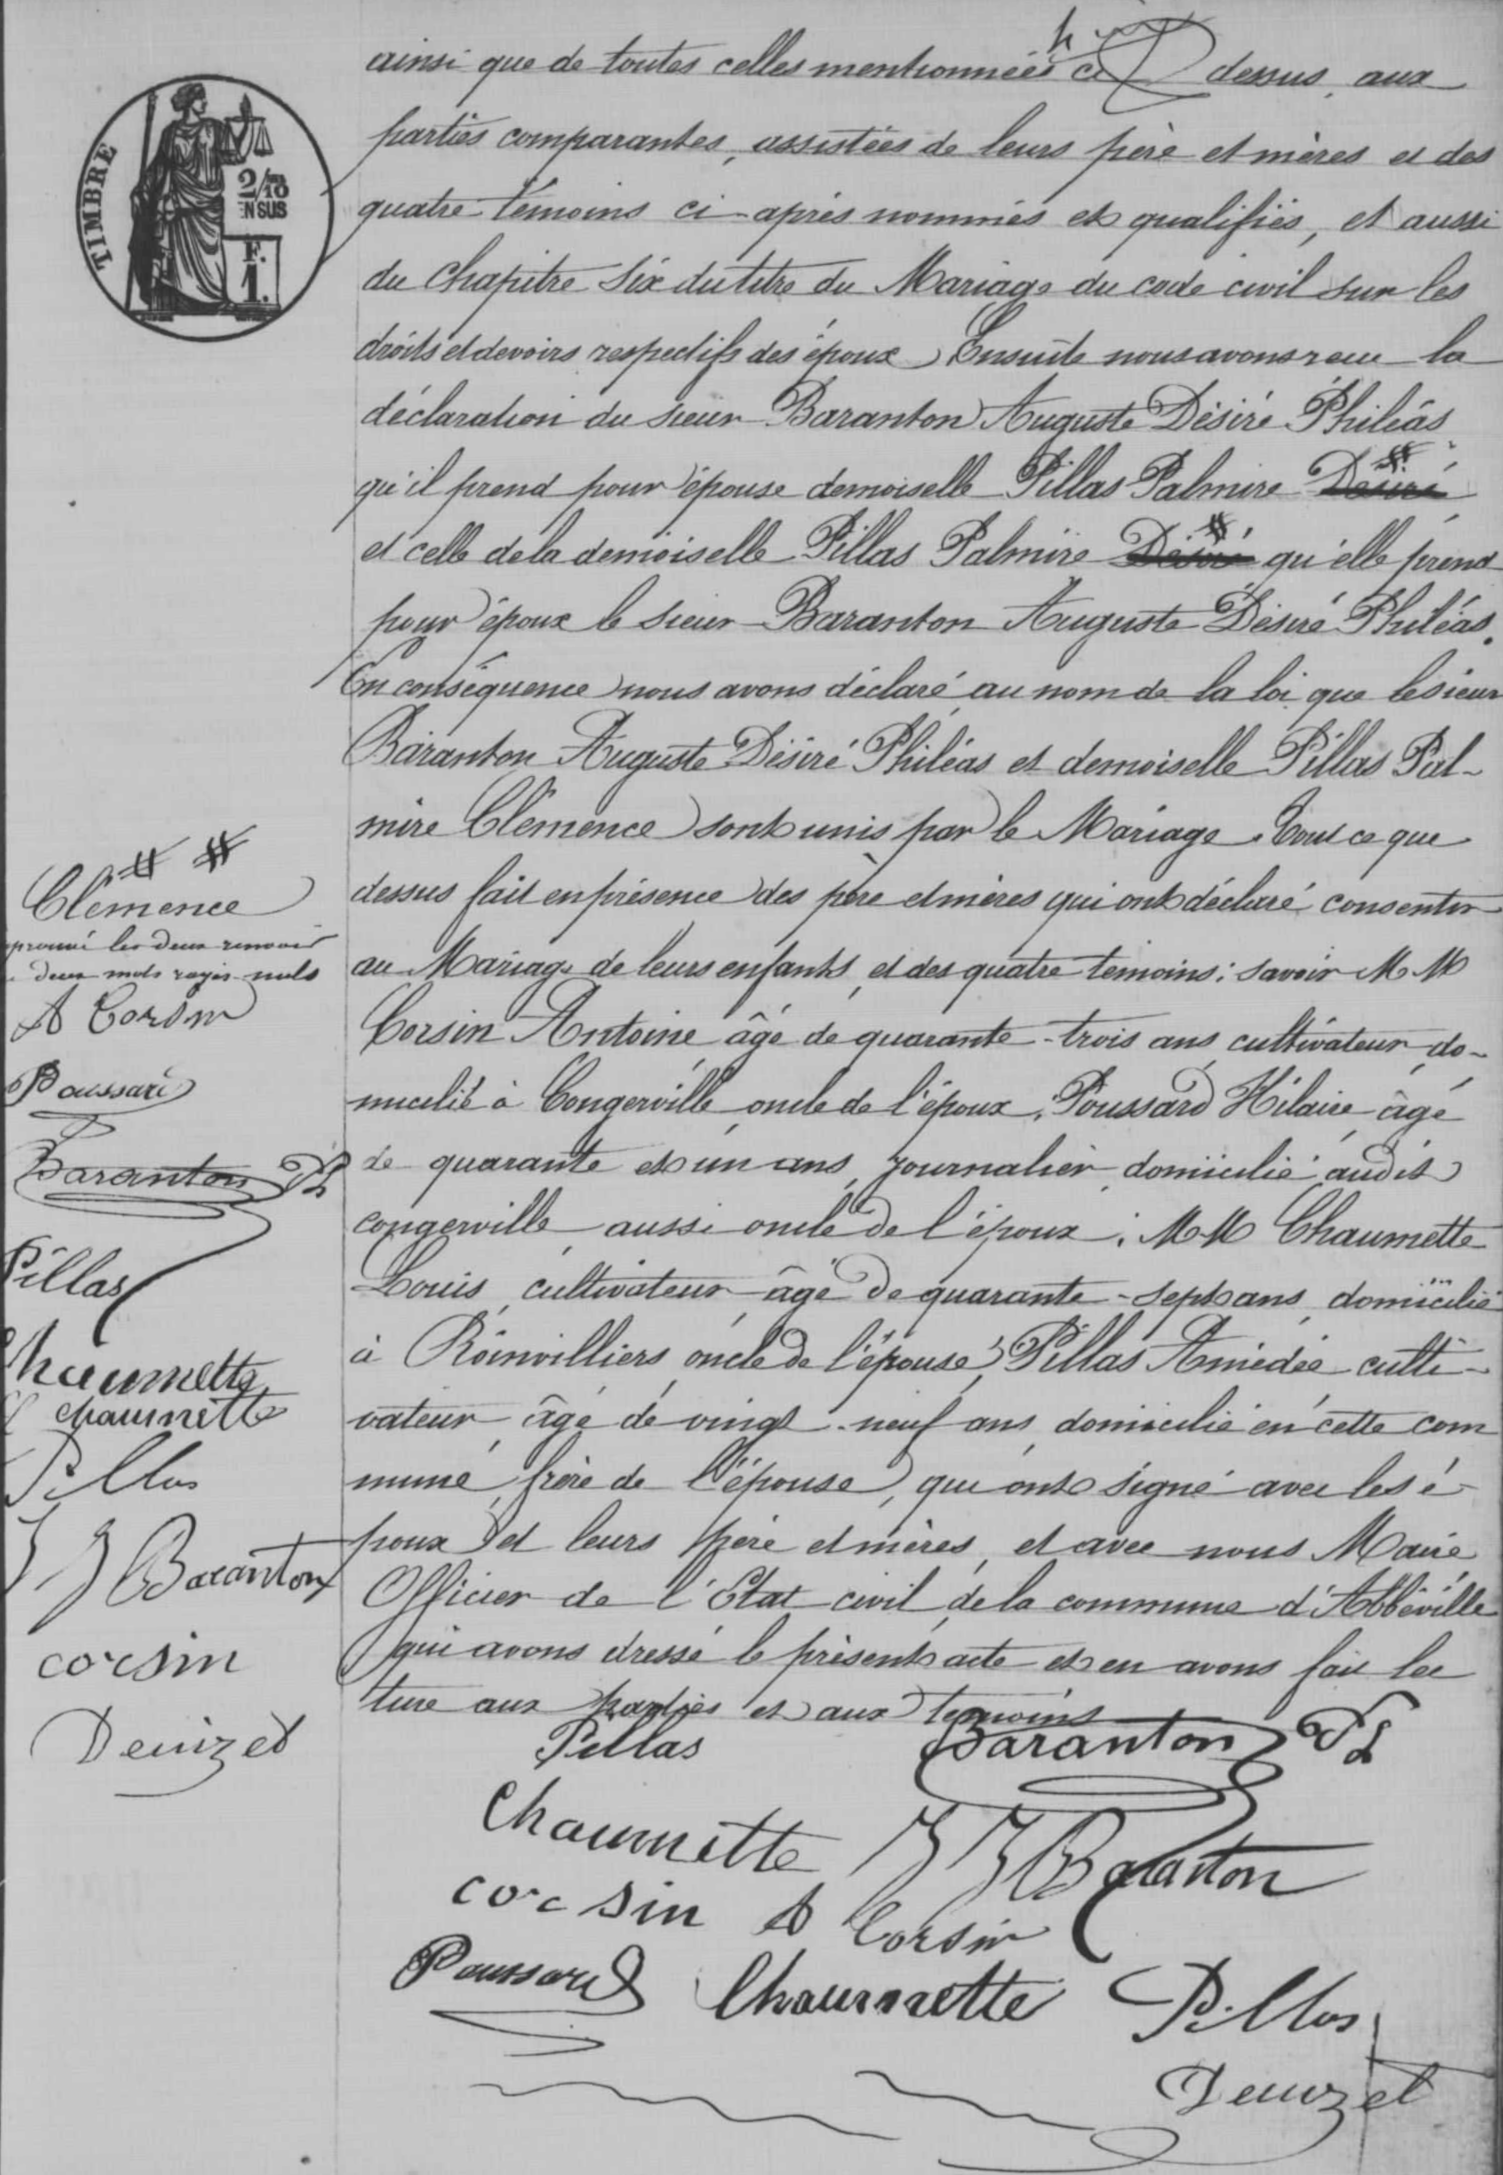 ainsi que de toutes celles mentionnées ci dessus, aux
parties comparantes, assistées de leurs père et mères et des
quatre témoins ci-après nommés et qualifiés, et aussi
du chapitre six du titre du Mariage du code civil sur les
droits et devoirs respectifs des époux Ensuite nous avons reçu la
déclaration du sieur Baranton Auguste Désiré Philéas
qu'il prend pour épouse demoiselle Pillas Palmire Désiré #
et celle de la demoiselle Pillas Palmire Désiré # qu'elle prend
pour époux le sieur Baranton Auguste Désiré Philéas.
En conséquence nous avons déclaré au nom de la loi que le sieur
Baranton Auguste Désiré Philéas et demoiselle Pillas Pal-
mire Clémence sont unis par le Mariage. Tout ce que
dessus fait en présence des père et mères qui ont déclaré consentir
au Mariage de leurs enfants, et des quatre témoins : savoir MM
Corsin Antoine âgé de quarante-trois ans, cultivateur, do-
micilié à Congerville oncle de l'époux, Poussard Hilaire âgé
de quarante et un ans, journalier domicilié audit
congerville aussi oncle de l'époux ; MM Chaumette
Louis, cultivateur âgé de quarante-sept ans, domicilié
à Roinvilliers, oncle de l'épouse, Pillas Amédée culti-
vateur âgé de vingt-neuf ans domicilié en cette com
mune, frère de l'épouse, qui ont signé avec les é-
poux et leurs père et mères, et avec nous Maire
Officier de l'Etat civil de la commune d'Abbéville
qui avons dressé le présent acte et en avons fait lec
ture aux parties et aux témoins
Pillas Baranton
Chaumette J J Baranton
corsin A Corsin
Poussard Chaumette Pillas
Denizet
TIMBRE
2/10
EN SUS
F.
1.
# #
Clémence
prouvé les deux renvois
deux mots rayés nuls
A Corsin
Poussard
Baranton
Pillas
Chaumette
chaumette
Pillas
J J Baranton
corsin
Denizet